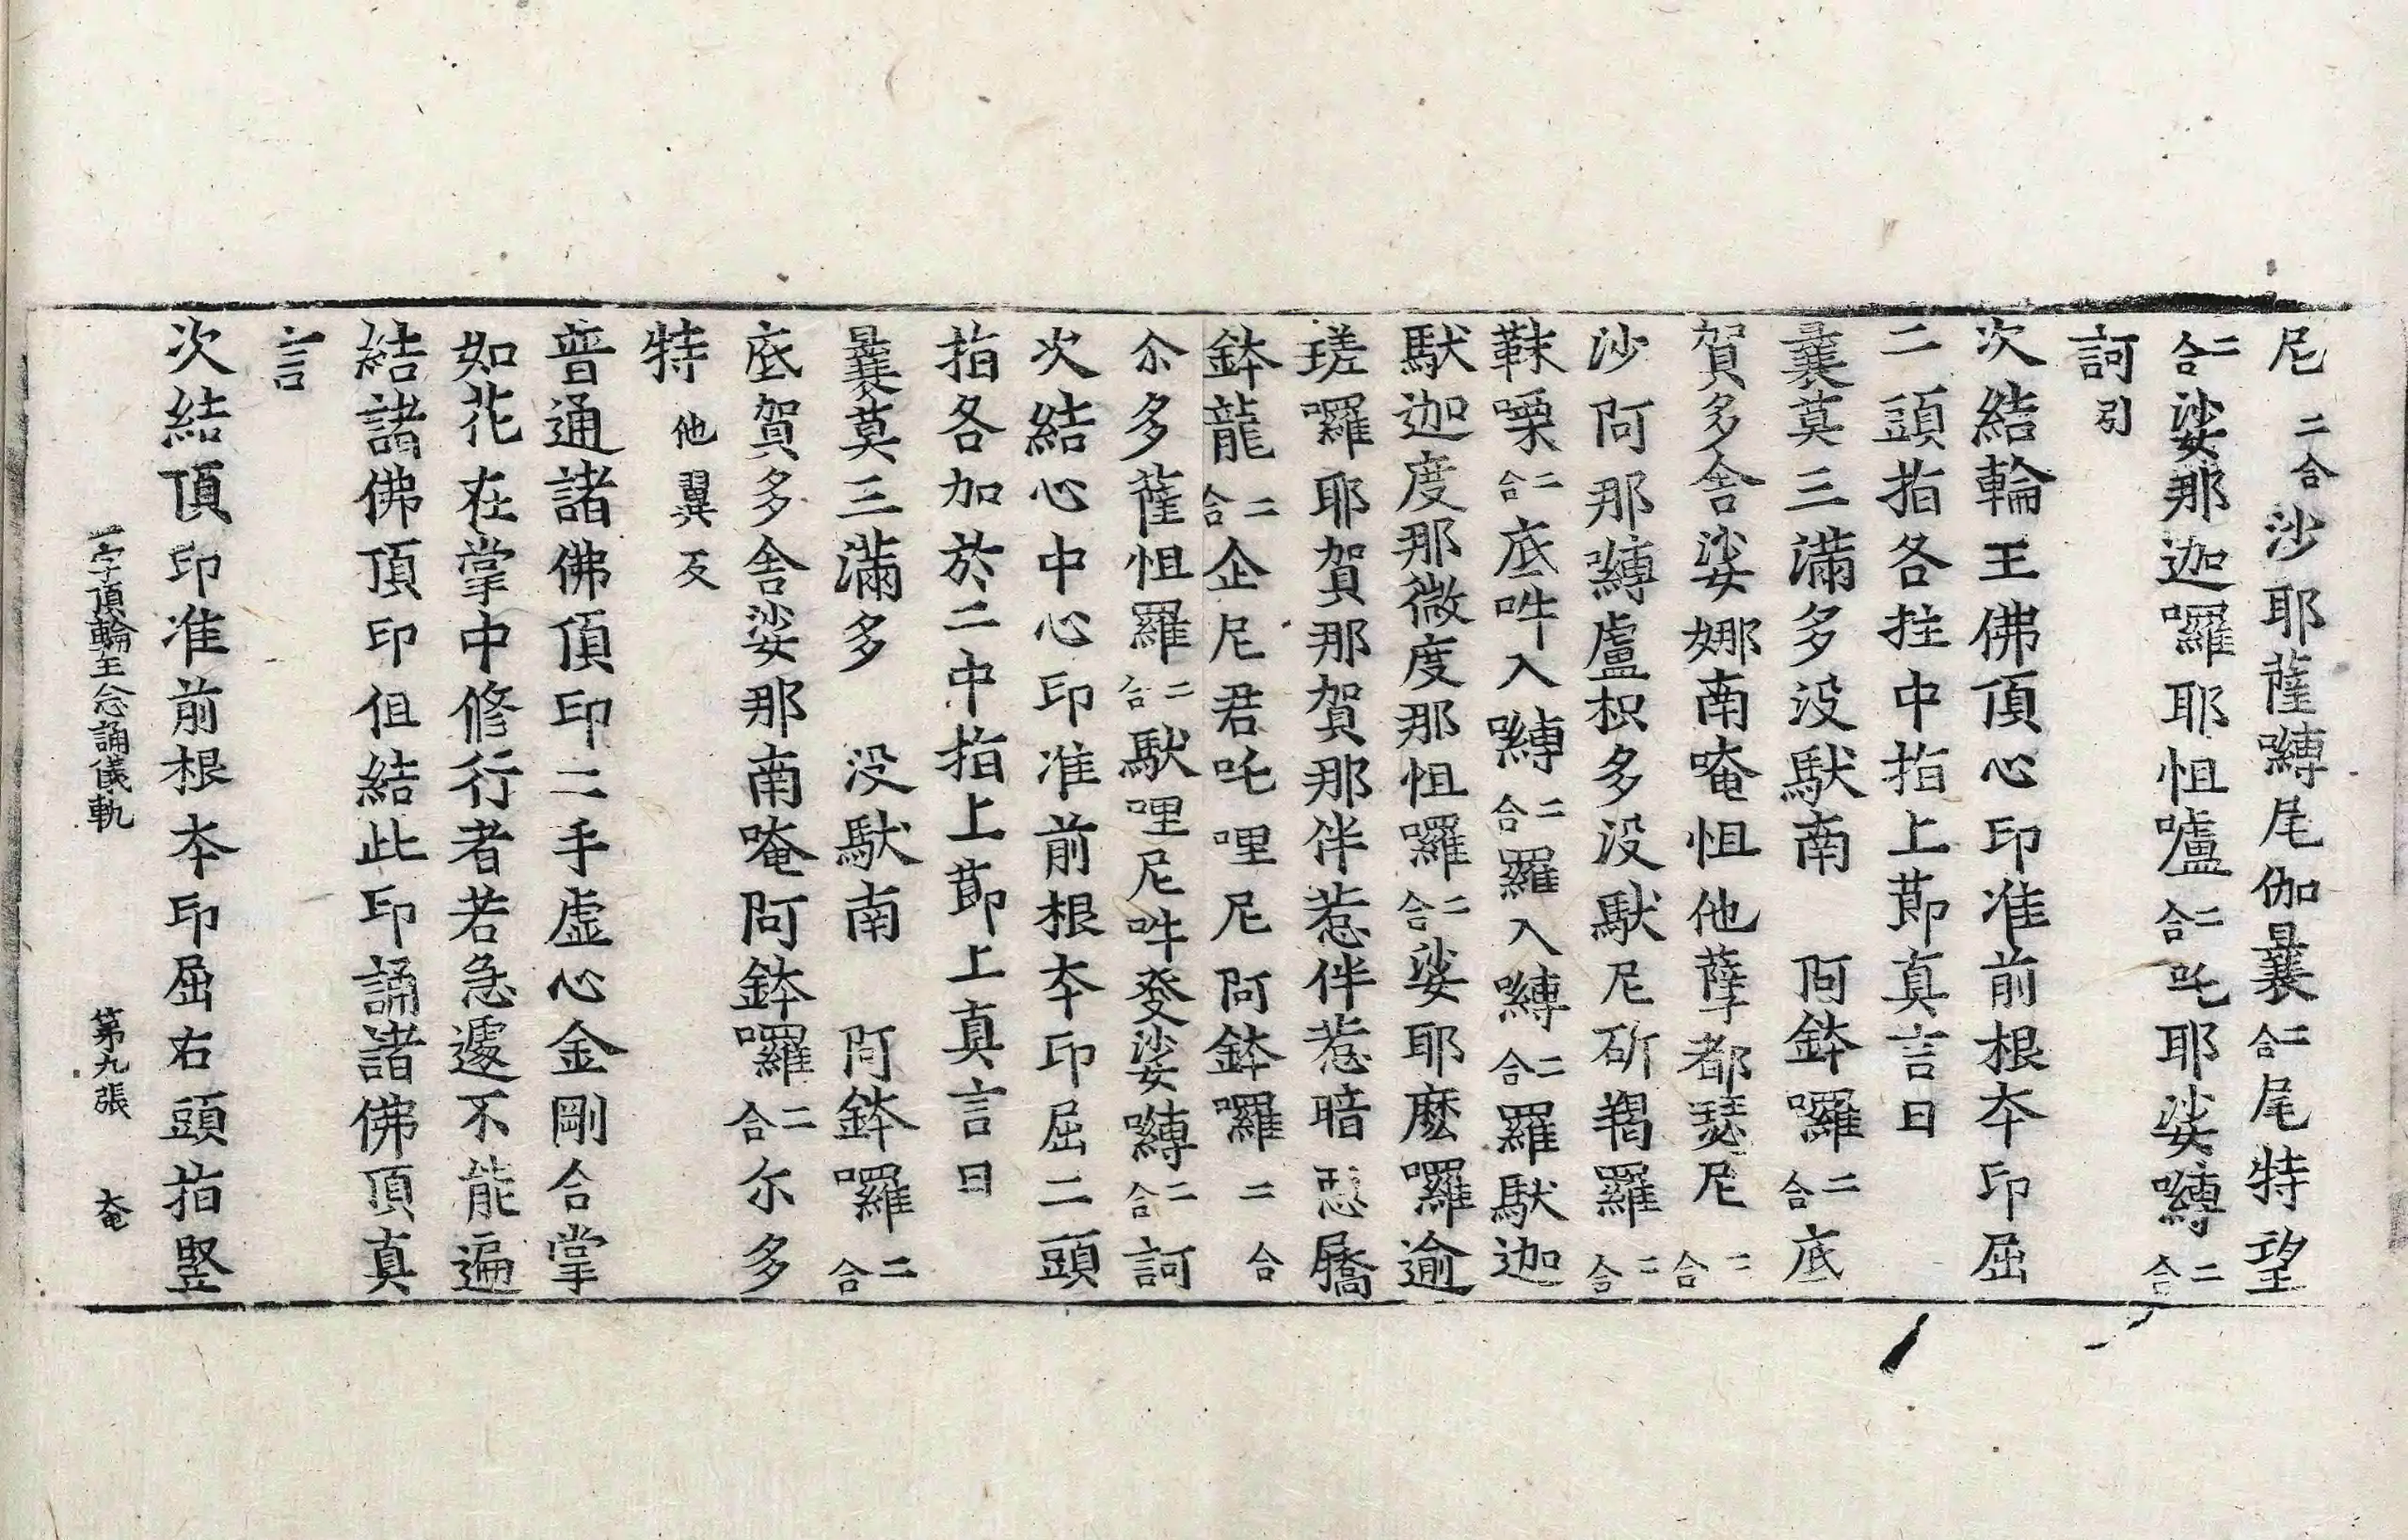 尼二合沙耶薩嚩尾伽曩二合尾特望
二合娑那迦囉耶怛嚧二合吒耶娑嚩二合
訶引
次結輪王佛頂心印准前根本印屈
二頭指各拄中指上莭真言曰
曩莫三滿多没馱南　阿鉢囉二合底
賀多舍娑娜南唵怛他孽都瑟尼二合
沙阿那嚩盧枳多没馱尼斫羯羅二合
靺㗚二合底吽入嚩二合羅入嚩二合羅馱迦
馱迦度那微度那怛囉二合娑耶麼囉逾
瑳囉耶賀那賀那伴惹伴惹暗惡屩
鉢龍二合企尼君吒哩尼阿鉢囉二合
尒多薩怛羅二合馱哩尼吽癹娑嚩二合訶
次結心中心印准前根本印屈二頭
指各加於二中指上莭上真言曰
曩莫三滿多　没馱南　阿鉢囉二合
底賀多舍娑那南唵阿鉢囉二合尒多
特他翼反
普通諸佛頂印二手虛心金剛合掌
如花在掌中修行者若急遽不能遍
結諸佛頂印但結此印誦諸佛頂真
言
次結頂印准前根本印屈右頭指竪
一字頂輪王念誦儀軌　第九張　奄